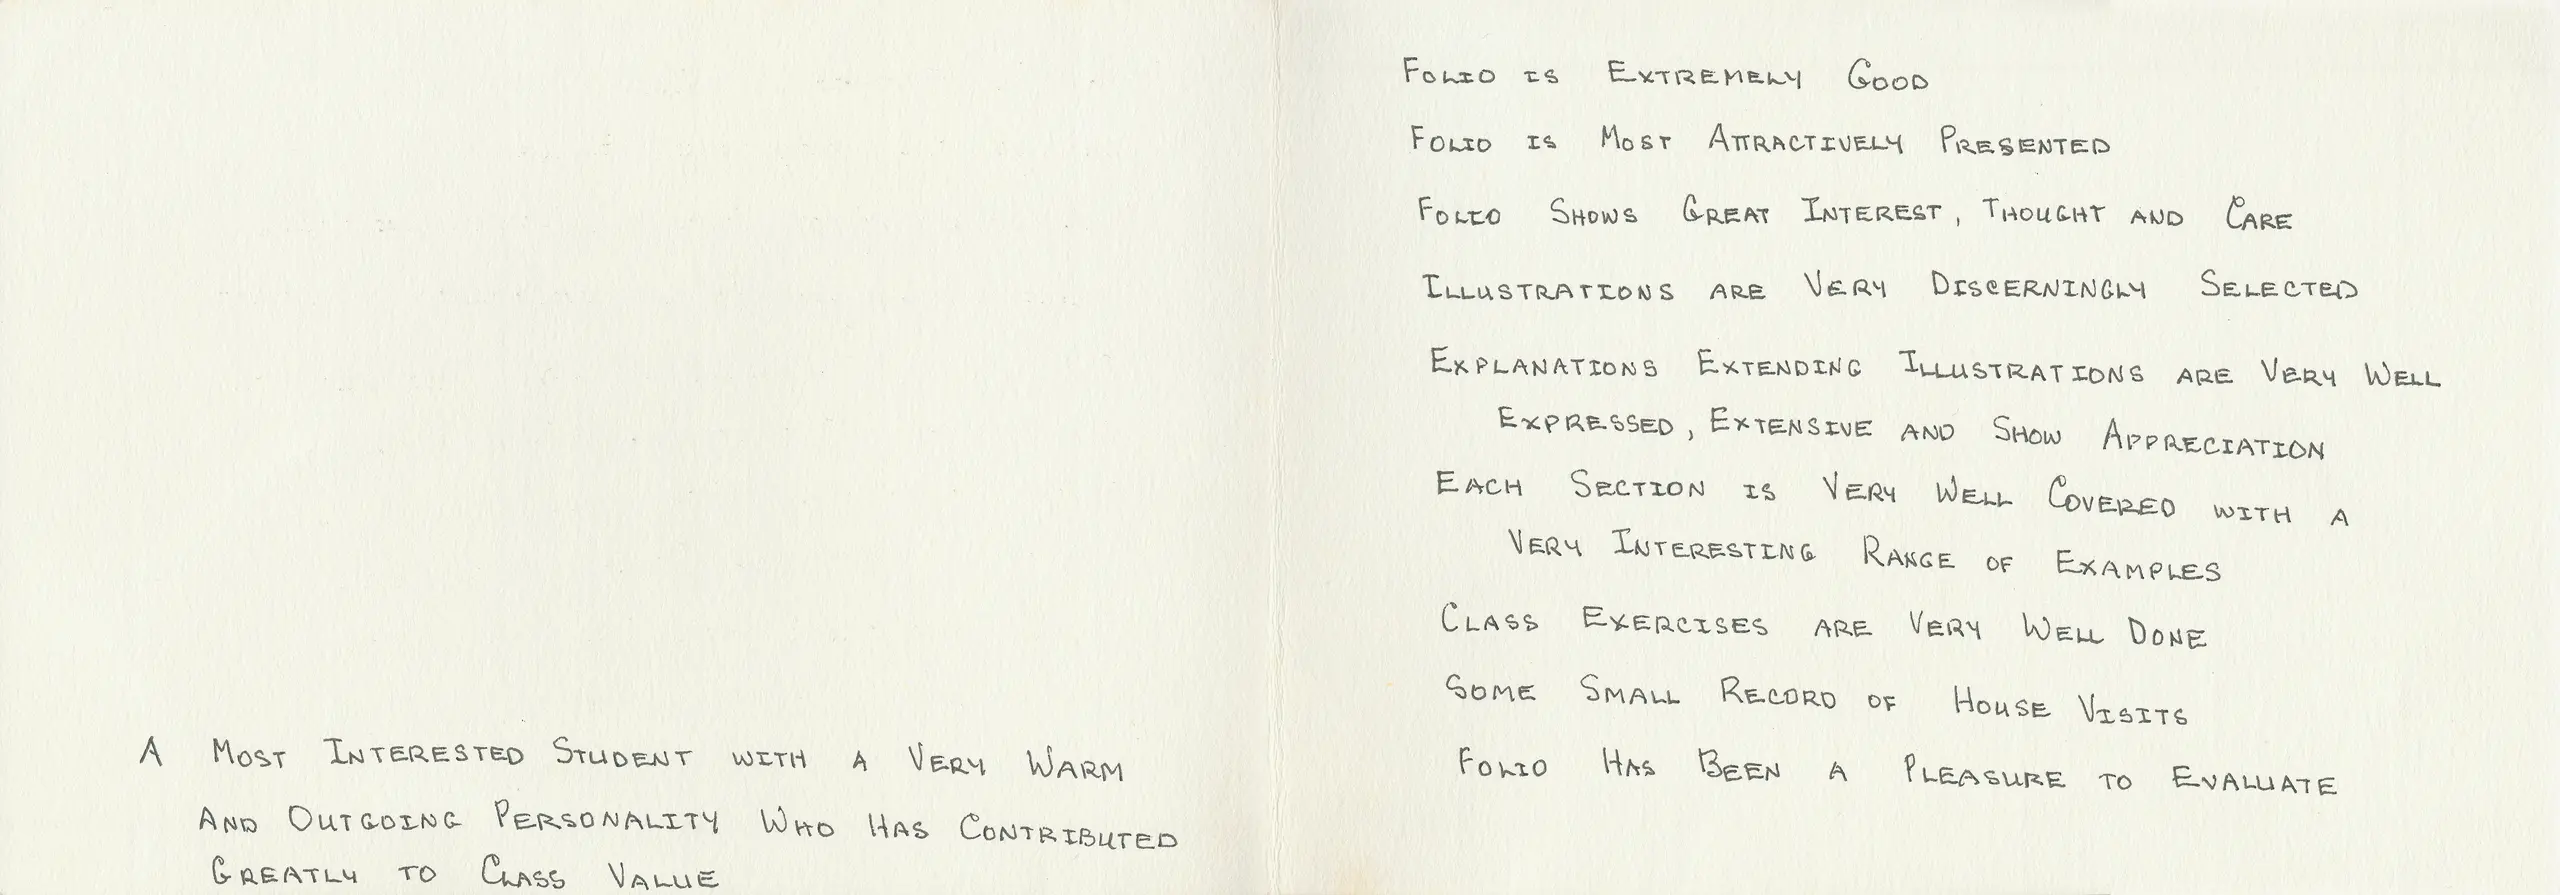 A Most Interested Student with a Very Warm
and Outgoing Personality Who Has Contributed
Greatly to Class Value
Folio is Extremely Good
Folio is Most Attractively Presented
Folio Shows Great Interest, Thought and Care
Illustrations are Very Discerningly Selected
Explanations Extending Illustrations are Very Well
Expressed, Extensive and Show Appreciation
Each Section is Very Well Covered with a
Very Interesting Range of Examples
Class Exercises are Very Well Done
Some Small Record of House Visits
Folio Has Been a Pleasure to Evaluate